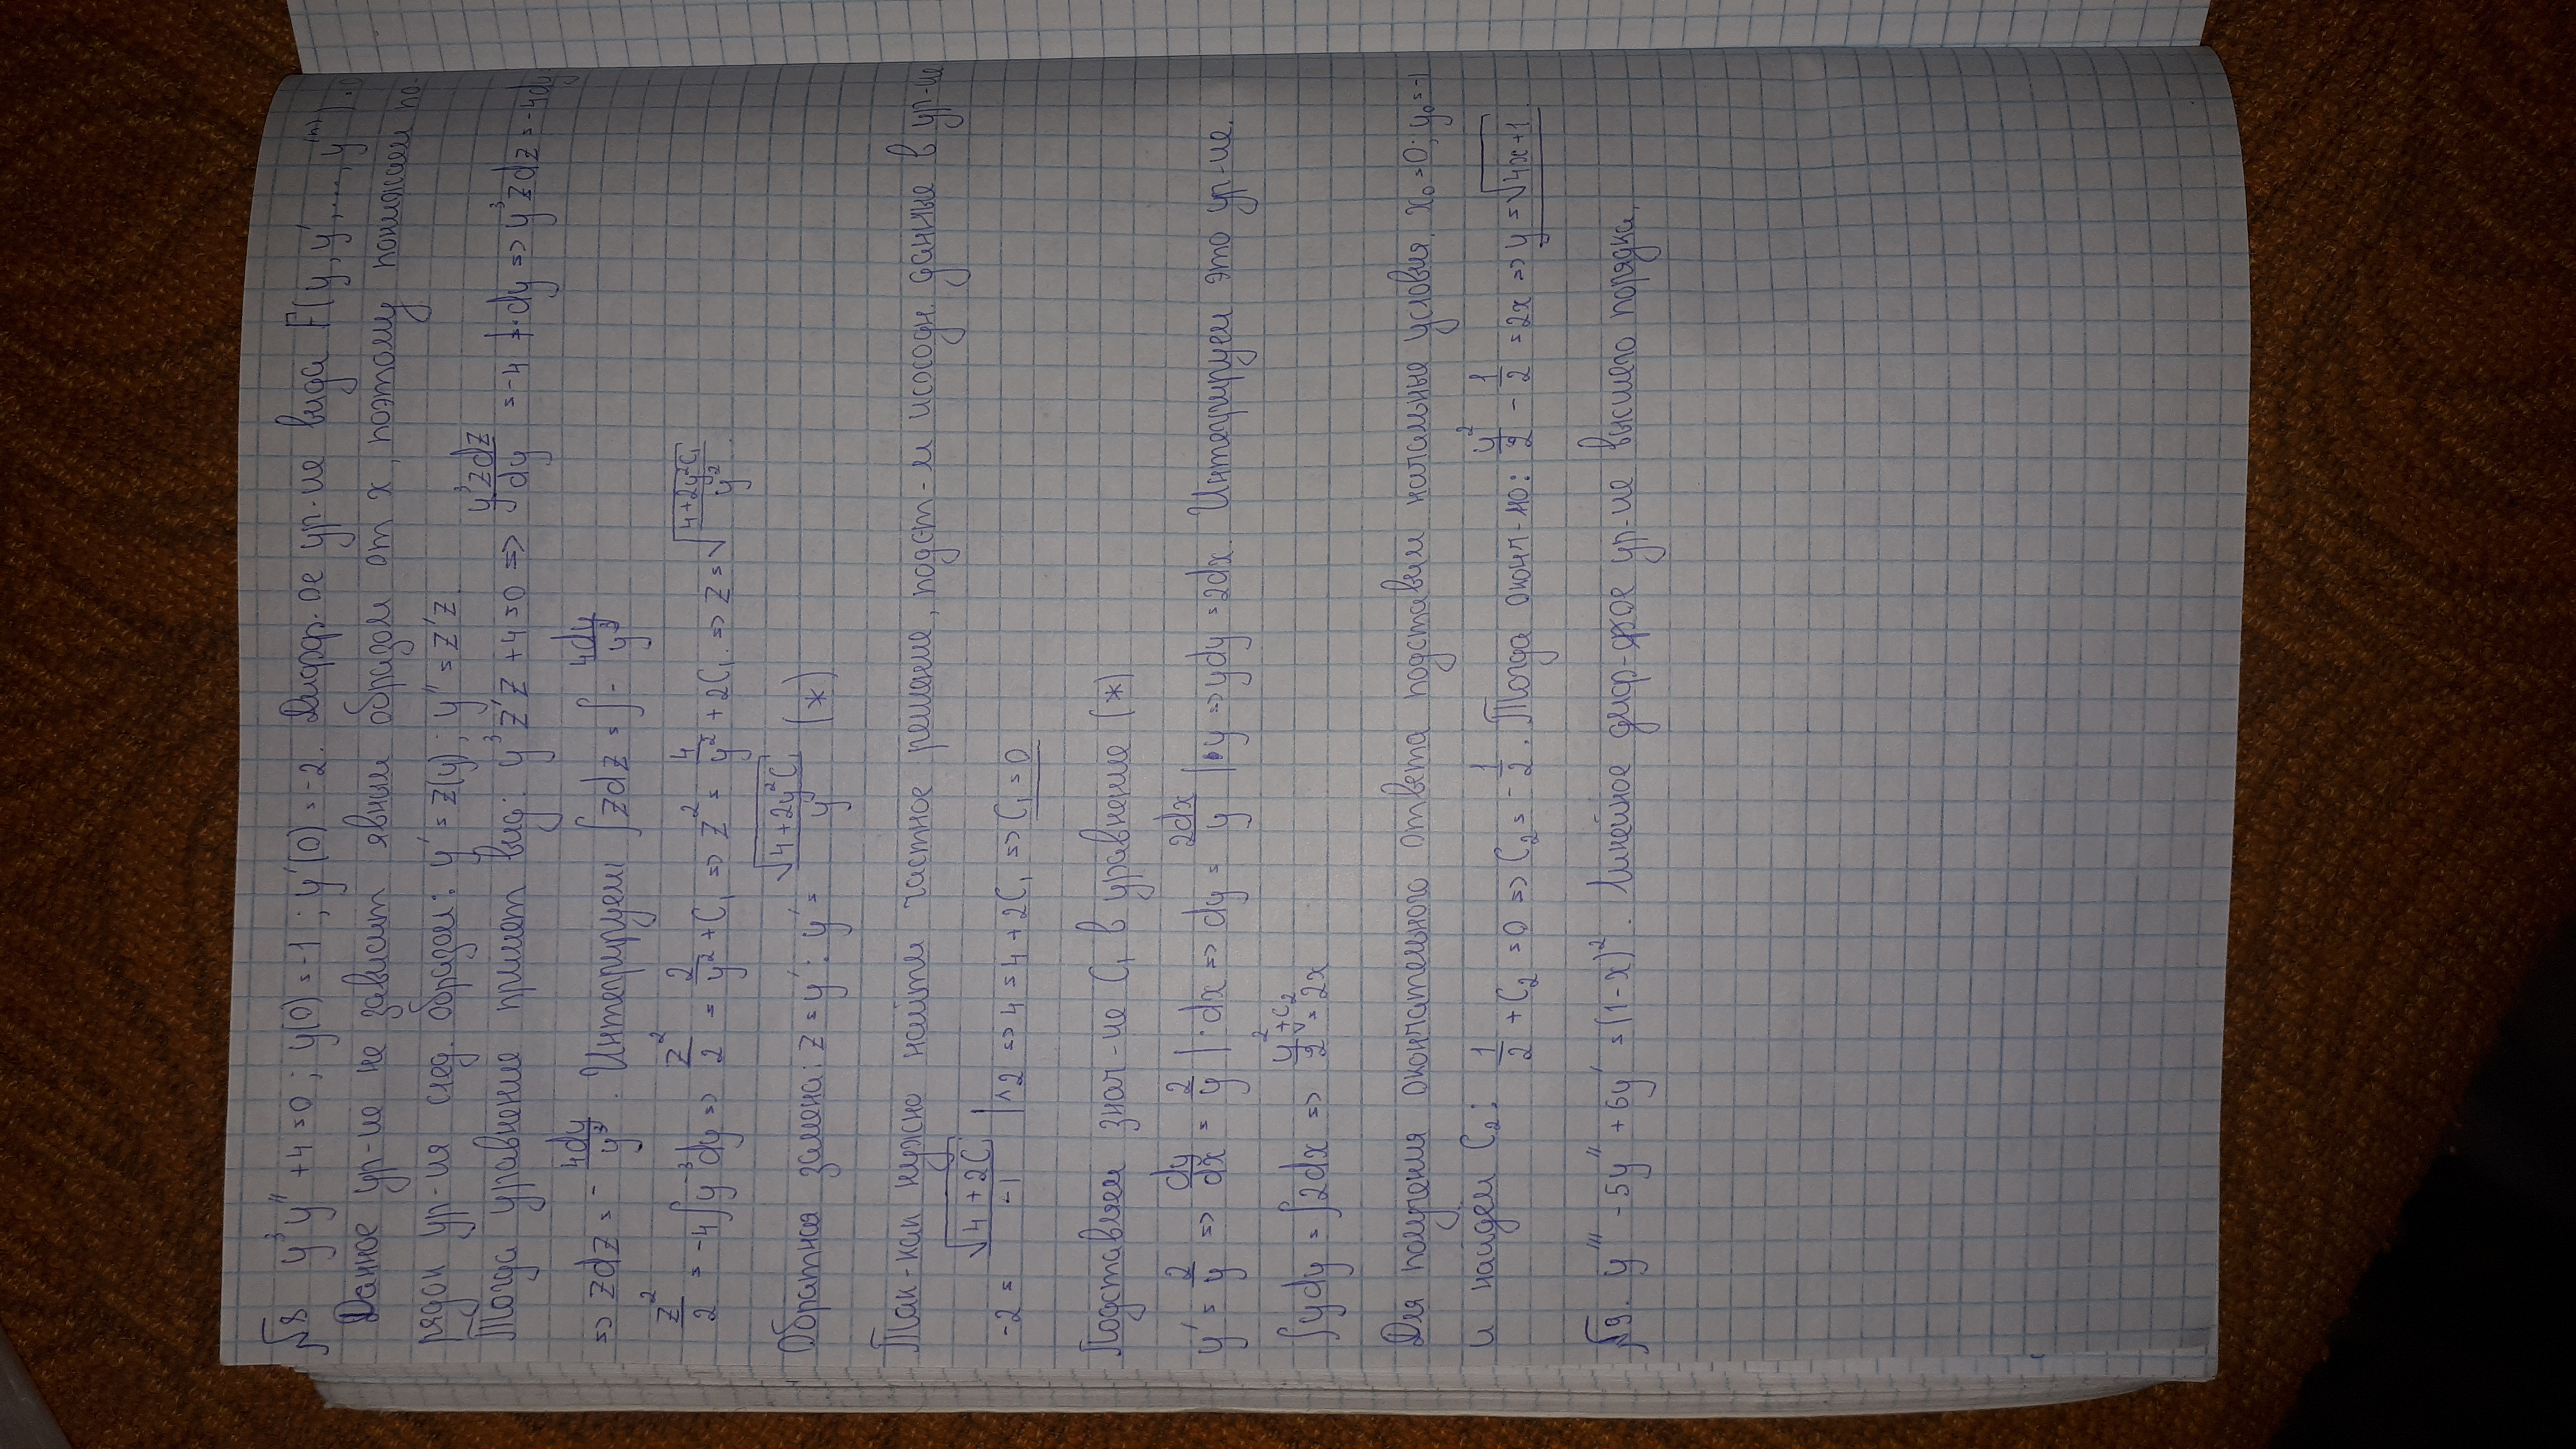 №8 y³y'' + 4 = 0; y(0) = -1; y'(0) = -2. Дифф-ое ур-ие вида F(y, y', ..., y⁽ⁿ⁾) = 0
Данное ур-ие не зависит явным образом от x, поэтому понижаем по-
рядок ур-ия след. образом: y' = z(y); y'' = z'z.
Тогда уравнение примет вид: y³z'z + 4 = 0 => y³zdz/dy = -4 | · dy => y³zdz = -4dy
=> zdz = - 4dy/y³. Интегрируем ∫zdz = ∫- 4dy/y³
z²/2 = -4∫y⁻³dy => z²/2 = 2/y² + C₁ => z² = 4/y² + 2C₁ => z = √((4+2y²C₁)/y²)
Обратная замена: z = y': y' = √(4+2y²C₁)/y (*)
Так-как нужно найти частное решение, подст-м исходн. данные в ур-ие
-2 = √(4+2C₁)/-1 |^2 => 4 = 4 + 2C₁ => C₁ = 0
Подставляем знач-ие C₁ в уравнение (*)
y' = 2/y => dy/dx = 2/y | · dx => dy = 2dx/y | · y => ydy = 2dx. Интегрируем это ур-ие.
∫ydy = ∫2dx => y²/2 + C₂ = 2x
Для получения окончательного ответа подставим начальные условия. x₀ = 0; y₀ = -1
и найдём C₂: 1/2 + C₂ = 0 => C₂ = - 1/2. Тогда оконч-но: y²/2 - 1/2 = 2x => y = √4x+1
№9. y''' - 5y'' + 6y' = (1-x)². Линейное диф-фое ур-ие высшего порядка.